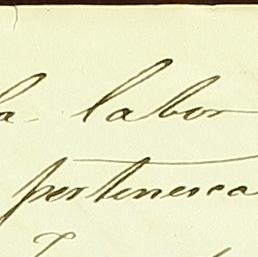 la labor
pertenesca